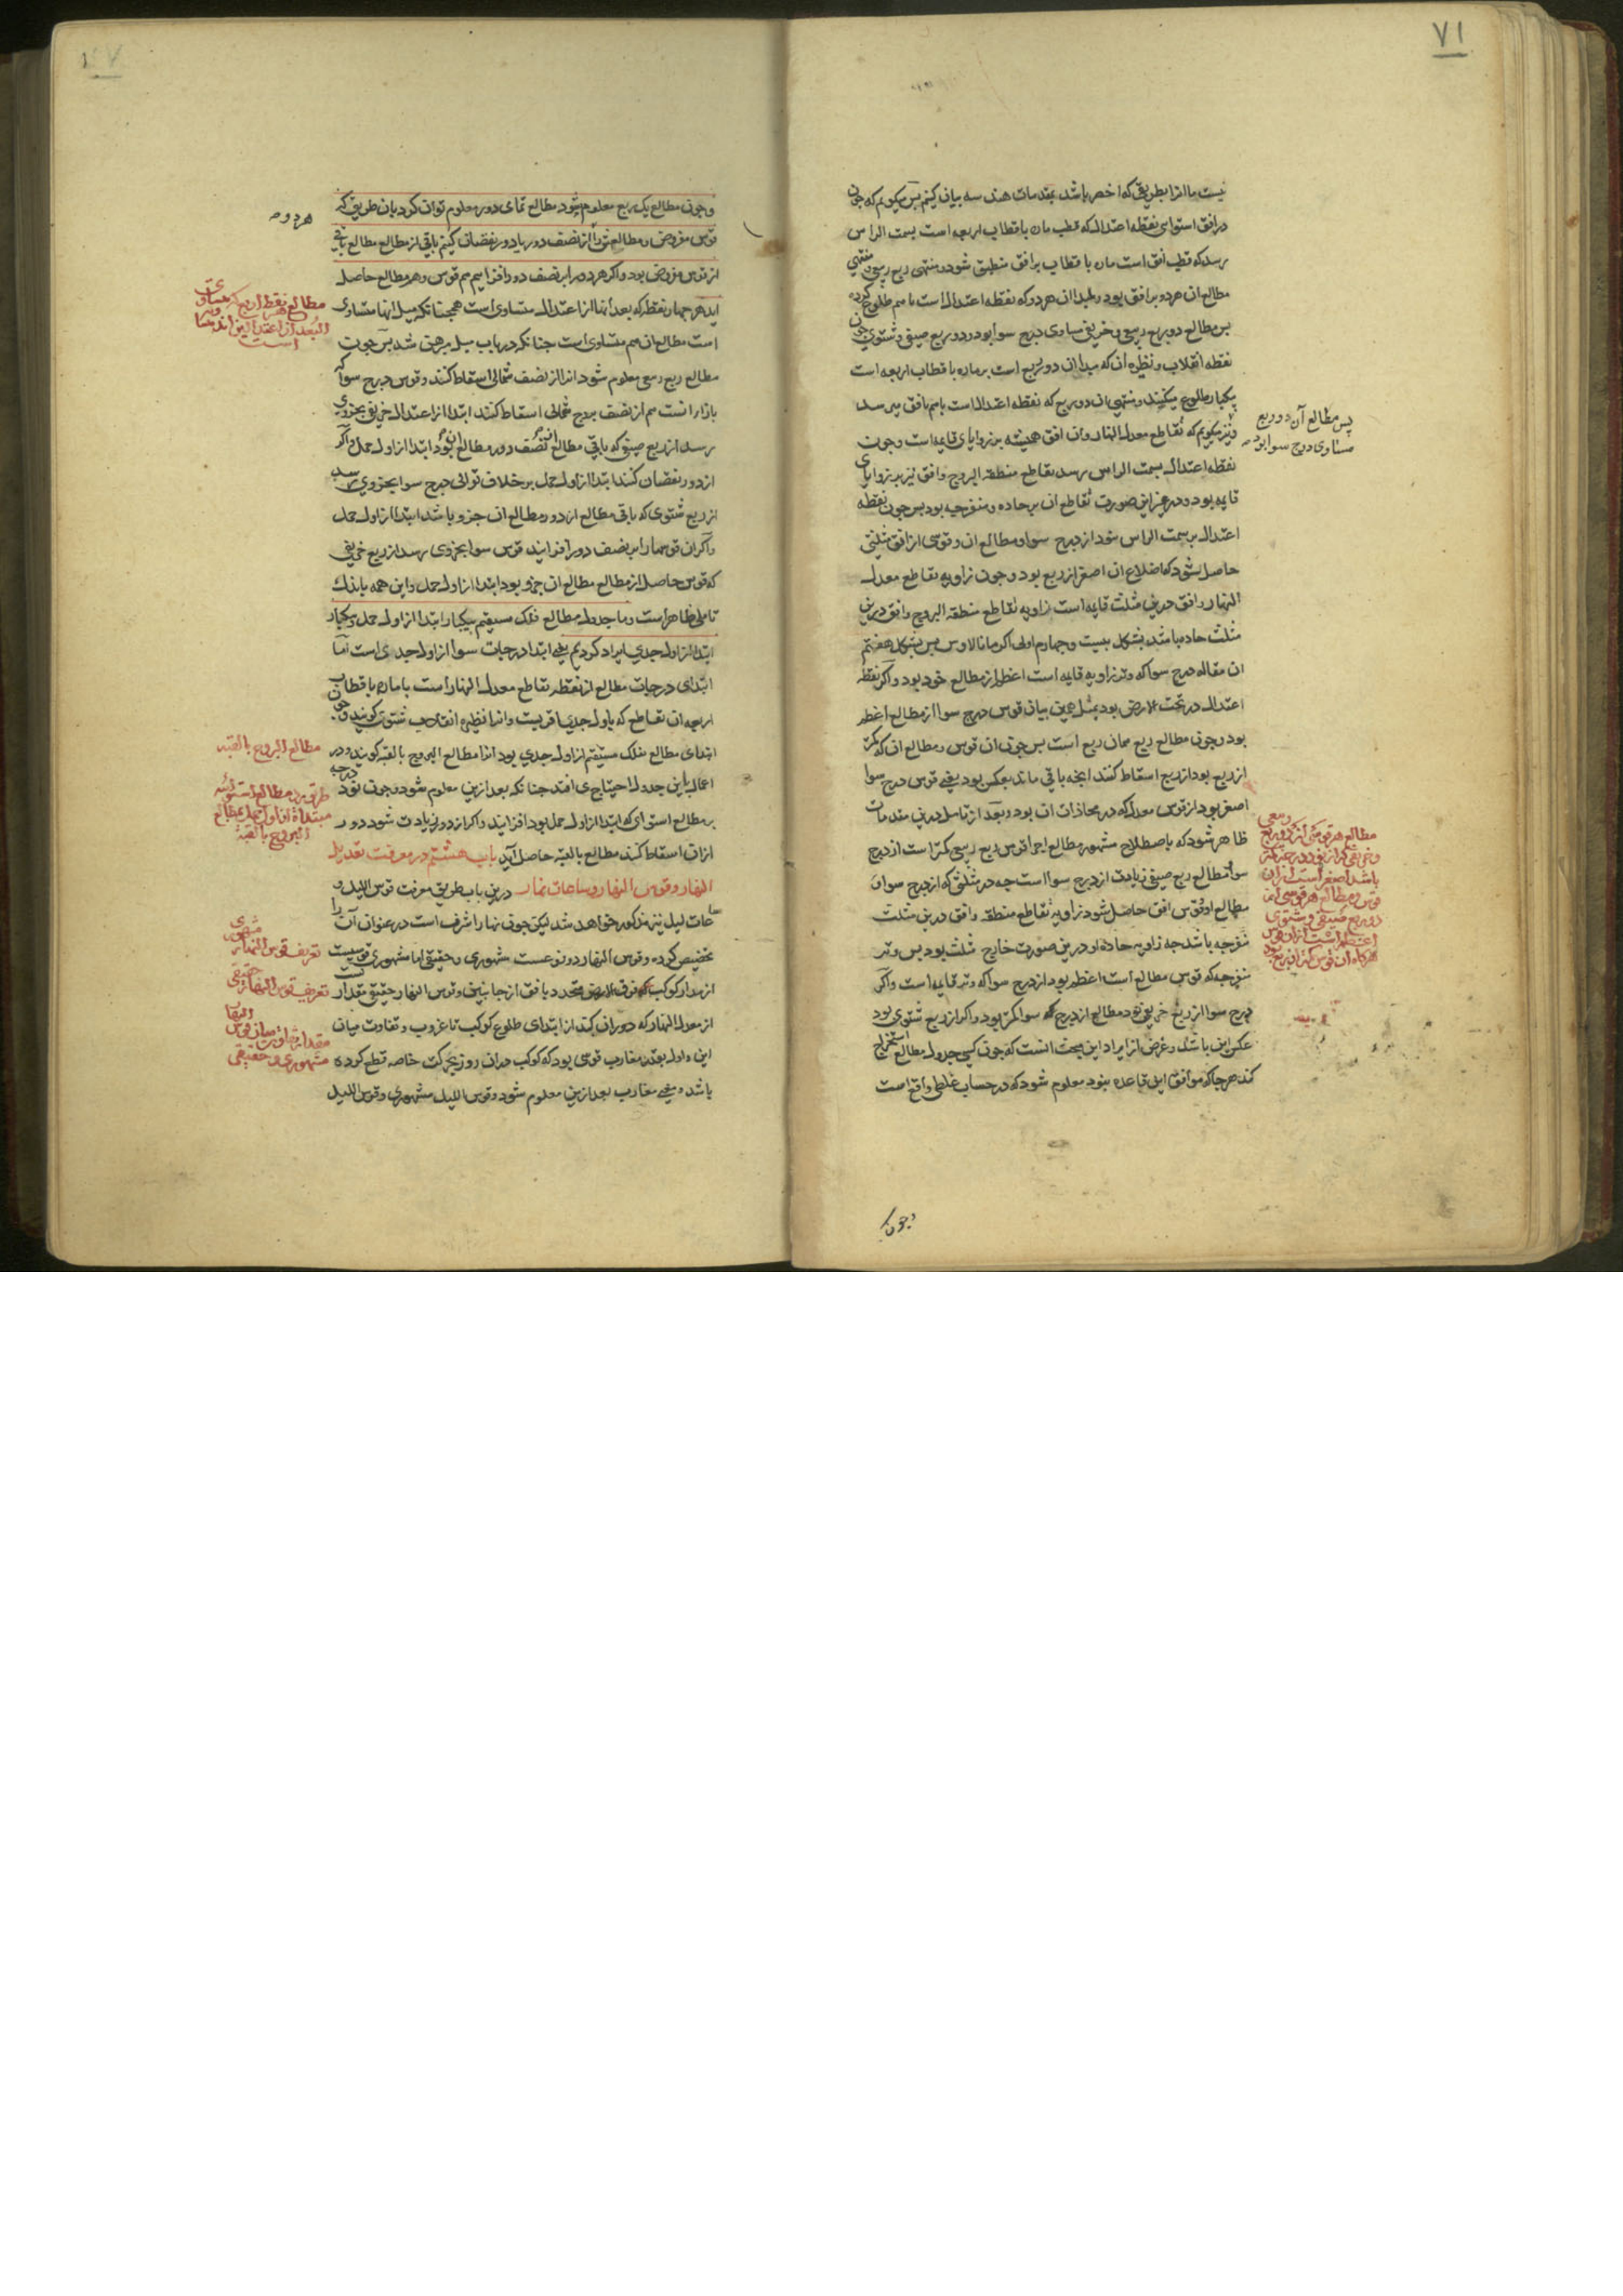 ۷۱
نیست ما انرا بطریقی که اخصر باشد بمقدمات هندسه بیان کنیم پس میکویم که چون
در افق استوا نقطه اعتدال که قطب مان باقطاب اربعه است بسمت الراس
رسد که قطب افق است مان با قطاب بر افق منطبق شود و منتهی ربع ربیعی
مطالع ان هر دو بر افق بود و مبدا ان هر دو که نقطه اعتدال است با هم طلوع کرده
پس مطالع دو ربع ربیعی و خریفی مساوی درج سوا بود و در دو ربع صیفی و شتوی چون
نقطه انقلاب و نظیره ان که مبدا ان دو ربع است بر ماره باقطاب اربعه است
بیکبار طلوع میکنند و منتهی ان دو ربع که نقطه اعتدال است باهم بافق میرسد
پس مطالع آن دو ربع
مساوی درج سوا بود
و نیز میکویم که تقاطع معدل النهار و ان افق همیشه بر زوایای قایمه است و چون
نقطه اعتدال بسمت الراس رسد تقاطع منطقه البروج و افق نیز بر زوایای
قایمه بود و در غیر این صورت تقاطع ان بر حاده و منفرجه بود پس چون نقطه
اعتدال بر سمت الراس شود از درج سوا و مطالع ان و قوسی از افق مثلثی
حاصل شود که اضلاع ان اصغر از ربع بود و چون زاویه تقاطع معدل
النهار و افق درین مثلث قایمه است زاویه تقاطع منطقه البروج و افق درین
مثلث حاده باشد بشکل بیست و چهارم اولی اکر مانالاوس پس بشکل هفتم
ان مقاله درج سوا که وتر زاویه قایمه است اعظم از مطالع خود بود و اکر نقطه
اعتدال در تحت الارض بود بمثل همین بیان قوس درج سوا از مطالع اعظم
بود و چون مطالع ربع همان ربع است پس چون ان قوس و مطالع ان که کمتر
از ربع بود از ربع اسقاط کنند انچه باقی ماند بعکس بود یعنی قوس درج سوا
اصغر بود از قوس معدل که در محاذات ان بود و بعد از تامل درین مقدمات
ظاهر شود که باصطلاح مشهور مطالع اجزا قوس ربع ربیعی کمتر است از درج
سوا و مطالع ربع صیفی زیادت از درج سوا است چه در مثلثی که از درج سوا و
مطالع او و قوس افق حاصل شود زاویه تقاطع منطقه و افق درین مثلث
منفرجه باشد چه زاویه حاده او درین صورت خارج مثلث بود پس وتر
منفرجه که قوس مطالع است اعظم بود از درج سوا که وتر قایمه است و اکر
درج سوا از ربع خریفی بود مطالع از درج سوا کمتر بود و اکر از ربع شتوی بود
عکس این باشد و غرض از ایراد این بحث انست که چون کسی جدول مطالع استخراج
کند هر جا که موافق این قاعده نبود معلوم شود که در حساب غلطی واقع است
مطالع هر قوسی از دو ربع
باشد اصغر است از ان
قوس و مطالع هر قوسی از
دو ربع صیفی و شتوی
اعظم است از ان قوس
هرگاه ان قوس کمتر از ربع بود
و چون
و چون مطالع یک ربع معلوم شود مطالع تمامی دور معلوم توان کرد بان طریق که
هر دو
قوس مفروض و مطالع انرا از نصف دور یا دور نقصان کنیم باقی از مطالع مطالع باقی
از قوس مفروض بود و اکر هر دو را بر نصف دور افزاییم هم قوس و هم مطالع حاصل
اید هر چهار نقطه که بعد انها از اعتدال متساوی است همچنانکه میل انها متساوی
است مطالع ان هم متساوی است چنانکه در باب میل مبرهن شد پس چون
مطالع نقطه اربع که متساوی
البعد از اعتدالین اند متساوی
است
مطالع ربع ربیعی معلوم شود انرا از نصف شمالی اسقاط کنند و قوس درج سوا که
بازا انست هم از نصف بروج شمالی اسقاط کنند ابتدا از اعتدال خریفی بجزوی
رسد از ربع صیفی که باقی مطالع از نصف دور مطالع ان بود ابتدا از اول حمل و اکر
از دور نقصان کنند ابتدا از اول حمل بر خلاف توالی درج سوا بجزوی رسد
از ربع شتوی که باقی مطالع از دور مطالع ان جزو باشد ابتدا از اول حمل
و اکر ان قوسها را بر نصف دور افزایند قوس سوا بجزوی رسد از ربع خریفی
که قوس حاصل از مطالع مطالع ان جزو بود ابتدا از اول حمل و این همه باندک
تاملی ظاهر است و ما جدول مطالع فلک مستقیم بیکبار ابتدا از اول حمل و یکبار
ابتدا از اول جدی ایراد کردیم یعنی ابتدا درجات سوا از اول جدی است اما
ابتدای درجات مطالع از نقطه تقاطع معدل النهار است با ماره باقطاب
اربعه ان تقاطع که باول جدی اقربست و انرا نظیره انقلاب شتوی کویند و چون
ابتدای مطالع فلک مستقیم از اول جدی بود انرا مطالع البروج بالقبه کویند و در
مطالع البروج بالقبه
اعمال باین جدول احتیاج می افتد چنانکه بعد ازین معلوم شود و چون نود درجه
بر مطالع استوای که ابتدا از اول حمل بود افزایند و اکر از دور زیادت شود دور
ازان اسقاط کنند مطالع بالقبه حاصل آید باب هشتم در معرفت تعدیل
طریق رد مطالع استوائیه
مبتداة از اول حمل بمطالع
البروج بالقبه
النهار و قوس النهار و ساعات نهار درین باب طریق معرفت قوس اللیل و
ساعات لیل نیز مذکور خواهد شد لیکن چون نهار اشرف است در عنوان آن را
تخصیص کرده و قوس النهار دو نوعست مشهوری و حقیقی اما مشهوری قوسیست
تعریف قوس النهار مشهوری
از مدار کوکب که فوق الارض محدد بافق از جانبین و قوس النهار حقیقی مقدار
تعریف قوس النهار حقیقی
از معدل النهار که دوران کند از ابتدای طلوع کوکب تا غروب و تفاوت میان
این و اول بقدر مغارب قوسی بود که کوکب دران روز بحرکت خاصه قطع کرده
مقدار تفاوت میان قوس النهار
مشهوری و حقیقی
باشد و معنی مغارب بعد ازین معلوم شود و قوس اللیل مشهوری و قوس اللیل